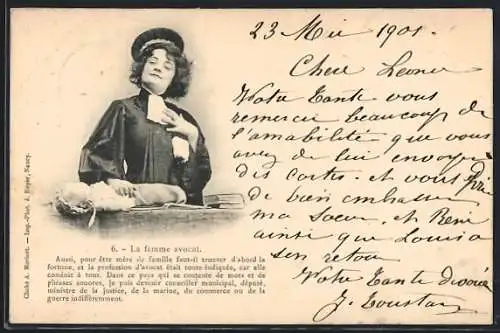 23 Mai 1901
Chère Leonie
Votre Tante vous
remercie beaucoup de
l'amabilité que vous
avez de lui envoyer
des cartes. et vous prie
de bien embrasser
ma Soeur. et René
ainsi que Louisa
Son retour
Votre Tante dévouée
J. Toustain
6. – La femme avocat.
Aussi, pour être mère de famille faut-il trouver d'abord la
fortune, et la profession d'avocat était toute indiquée, car elle
conduit à tout. Dans ce pays qui se contente de mots et de
phrases sonores, je puis devenir conseiller municipal, député,
ministre de la justice, de la marine, du commerce ou de la
guerre indifféremment.
Cliché A. Imp.-Phot. A. Nancy.